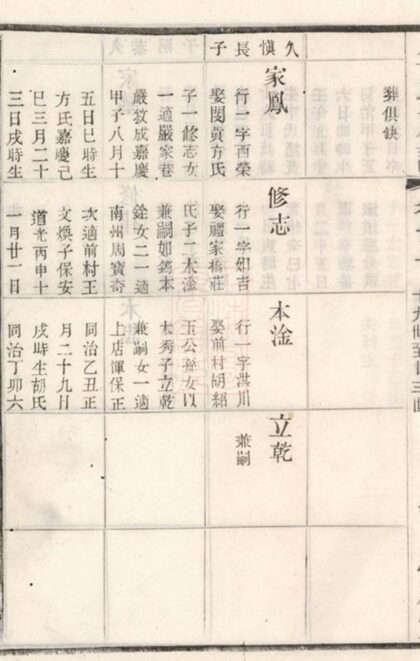 葬俱缺
久慎長子
家鳳
行一字西榮
娶閔黃方氏
子一修志女
一適嚴家巷
嚴敘成嘉慶
甲子八月十
五日巳時生
方氏嘉慶己
巳三月二十
三日戌時生
修志
行一字如吉
娶禮家橋莊
氏子一本淦
兼嗣如筠本
銓女二一適
南州周寶奇
次適前村王
文煥子保安
道光丙申十
一月廿一日
本淦
行一字淇川
娶前村胡紹
玉公孫女以
本秀子立乾
兼嗣女一適
上店惲保正
同治乙丑正
月二十九日
戌時生胡氏
同治丁卯六
立乾
兼嗣